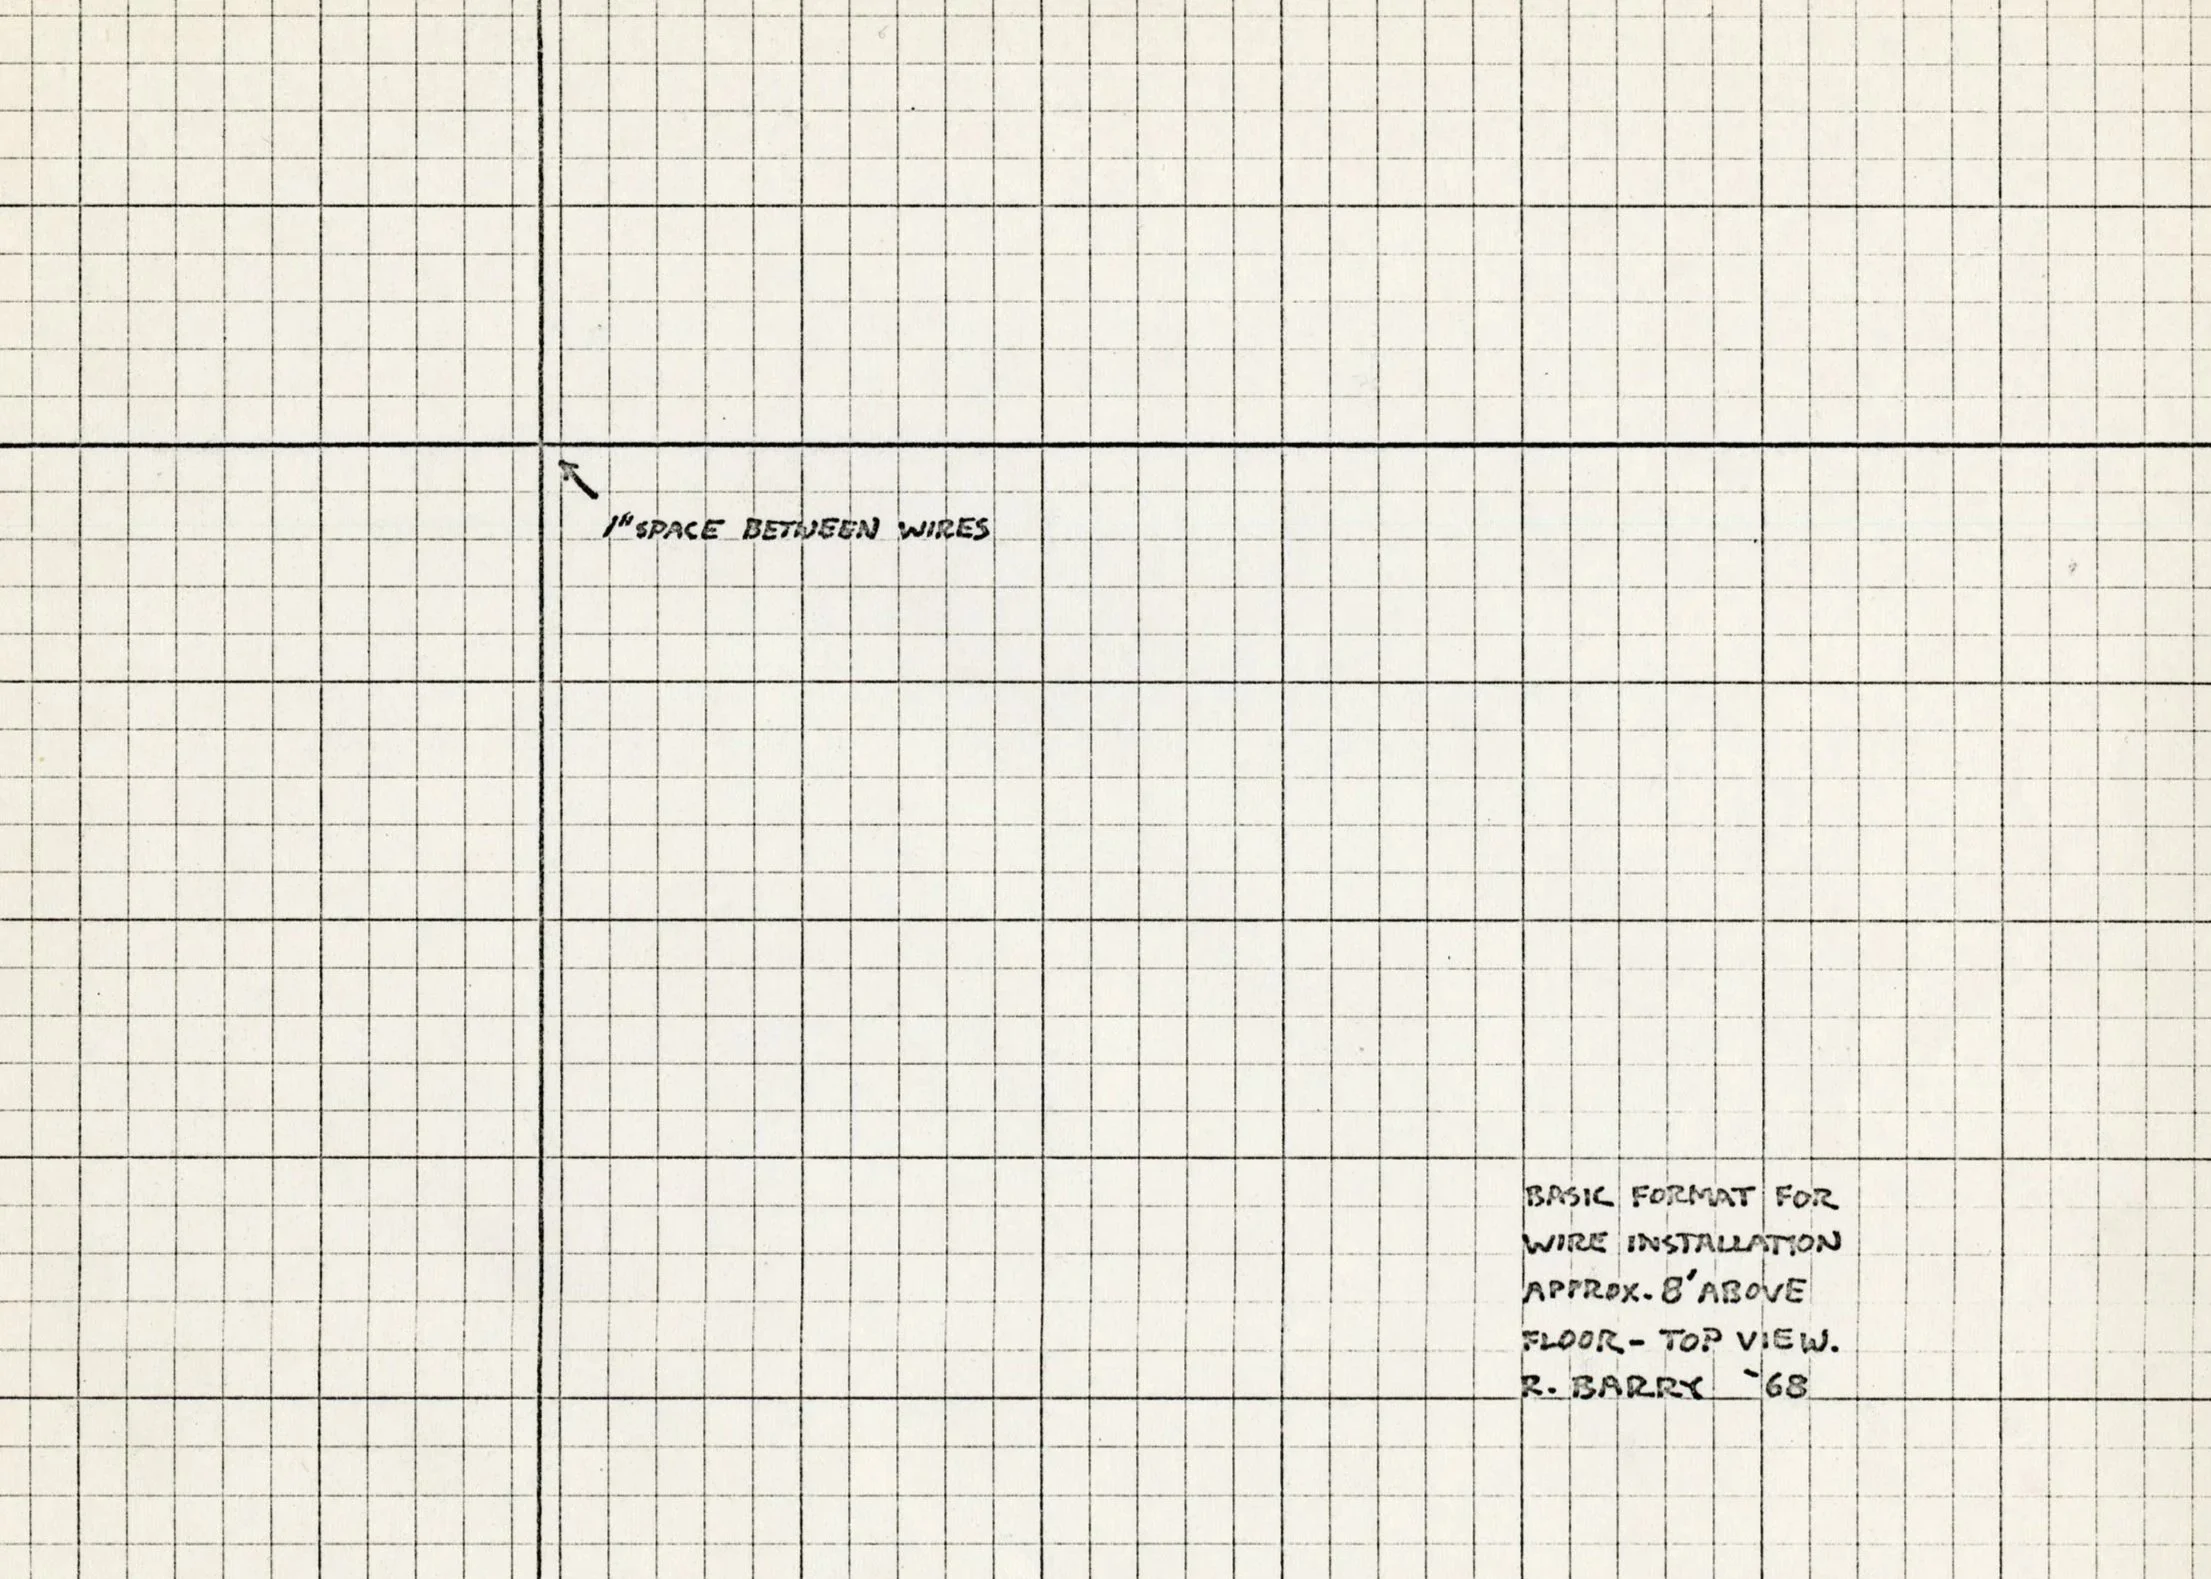 1" SPACE BETWEEN WIRES
BASIC FORMAT FOR
WIRE INSTALLATION
APPROX. 8' ABOVE
FLOOR - TOP VIEW.
R. BARRY '68